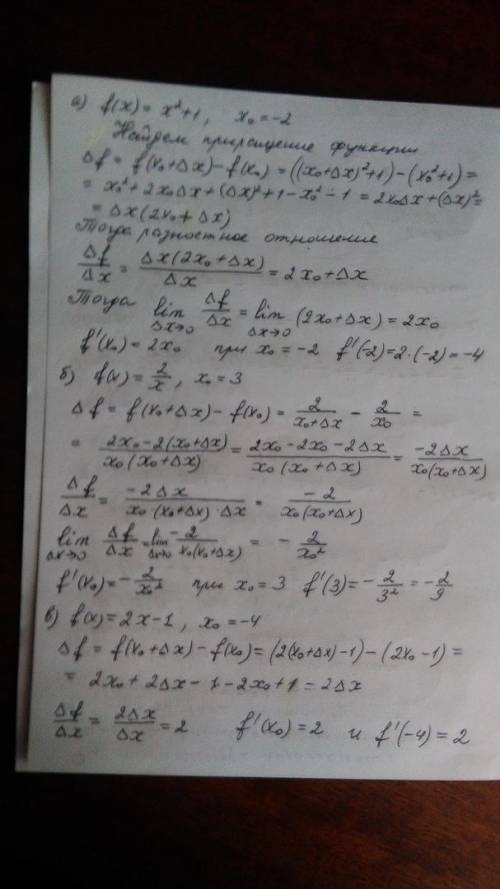 а) f(x) = x²+1, x₀ = -2
Найдем приращение функции
Δf = f(x₀+Δx) - f(x₀) = ((x₀+Δx)²+1) - (x₀²+1) =
= x₀² + 2x₀Δx + (Δx)² + 1 - x₀² - 1 = 2x₀Δx + (Δx)² =
= Δx(2x₀ + Δx)
Тогда разностное отношение
Δf/Δx = Δx(2x₀+Δx)/Δx = 2x₀+Δx
Тогда lim Δx→0 Δf/Δx = lim Δx→0 (2x₀+Δx) = 2x₀
f'(x₀) = 2x₀ при x₀ = -2 f'(-2) = 2·(-2) = -4
б) f(x) = 2/x, x₀ = 3
Δf = f(x₀+Δx) - f(x₀) = 2/(x₀+Δx) - 2/x₀ =
= (2x₀ - 2(x₀+Δx))/(x₀(x₀+Δx)) = (2x₀ - 2x₀ - 2Δx)/(x₀(x₀+Δx)) = -2Δx/(x₀(x₀+Δx))
Δf/Δx = -2Δx/(x₀(x₀+Δx)·Δx) = -2/(x₀(x₀+Δx))
lim Δx→0 Δf/Δx = lim Δx→0 -2/(x₀(x₀+Δx)) = -2/x₀²
f'(x₀) = -2/x₀² при x₀ = 3 f'(3) = -2/3² = -2/9
в) f(x) = 2x-1, x₀ = -4
Δf = f(x₀+Δx) - f(x₀) = (2(x₀+Δx)-1) - (2x₀-1) =
= 2x₀ + 2Δx - 1 - 2x₀ + 1 = 2Δx
Δf/Δx = 2Δx/Δx = 2 f'(x₀) = 2 и f'(-4) = 2